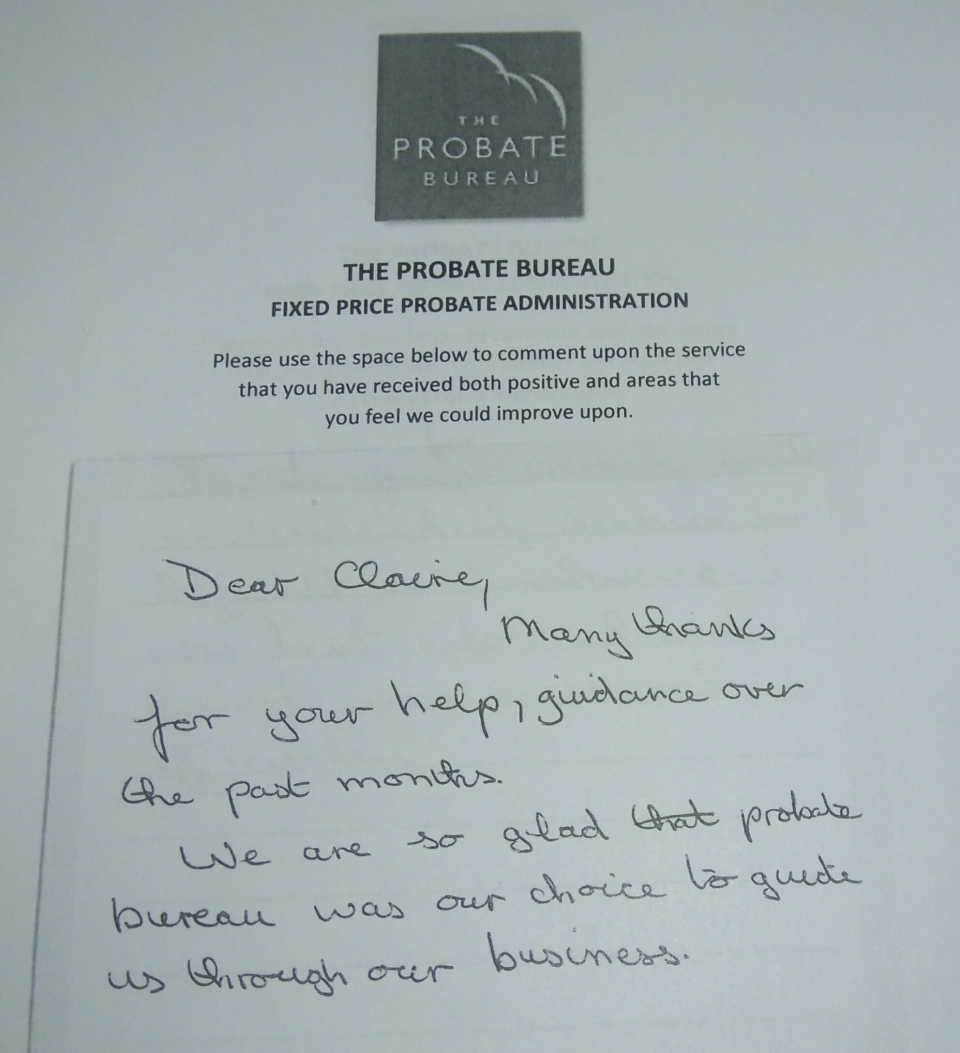 THE
PROBATE
BUREAU
THE PROBATE BUREAU
FIXED PRICE PROBATE ADMINISTRATION
Please use the space below to comment upon the service
that you have received both positive and areas that
you feel we could improve upon.
Dear Claire,
Many thanks
for your help, guidance over
the past months.
We are so glad that probate
bureau was our choice to guide
us through our business.